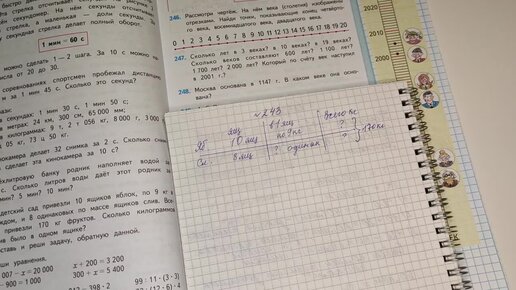 быстро
стрелка отсчитывает
а маленькая — доли секунды. За
секундная стрелка делает полный оборот.
1 мин = 60 с
можно сделать 1—2 шага. За 10 с можно
от 20 до 30.
соревнованиях спортсмен пробежал дистанцию
за 1 мин 45 с. Сколько это секунд?
в секундах: 1 мин 30 с, 1 мин 50 с;
в метрах: 24 км, 300 см, 65 000 мм;
килограммах: 9 т, 2 т 056 кг, 8 000 г, 3 000
05 кг, 73 ц 50 кг.
камера делает 32 снимка за 2 с. Сколько снимков
сделает эта кинокамера за 10 с?
литровую банку родник наполняет водой за
Сколько литров воды даёт этот родник за
5 мин? 10 мин?
детский сад привезли 10 ящиков яблок, по 9 кг в
каждом, и 8 одинаковых по массе ящиков слив. Всего
привезли 170 кг фруктов. Сколько килограммов
слив было в одном ящике?
составь и реши задачу, обратную данной.
уравнения.
007 − x = 20 000 x + 200 = 3 200
− 900 = 1 000 300 + x = 5 400
398 · 2 99 : 11 · (3 · 3)
246. Рассмотри чертёж. На нём века (столетия) изображены
отрезками. Найди точки, показывающие конец четвёртого
века, восемнадцатого века, двадцатого века.
0 1 2 3 4 5 6 7 8 9 10 11 12 13 14 15 16 17 18 19 20
247. Сколько лет в 3 веках? в 10 веках? в 19 веках?
Сколько веков составляют 600 лет? 1 100 лет?
1 700 лет? 2 000 лет? Который по счёту век наступил
в 2001 г.?
248. Москва основана в 1147 г. В каком веке она основана?
2020
2010
2000
№ 243
ящ в 1 ящ Всего кг
Яб 10 ящ по 9 кг ?
Сл. 8 ящ ? одинак ?
170 кг